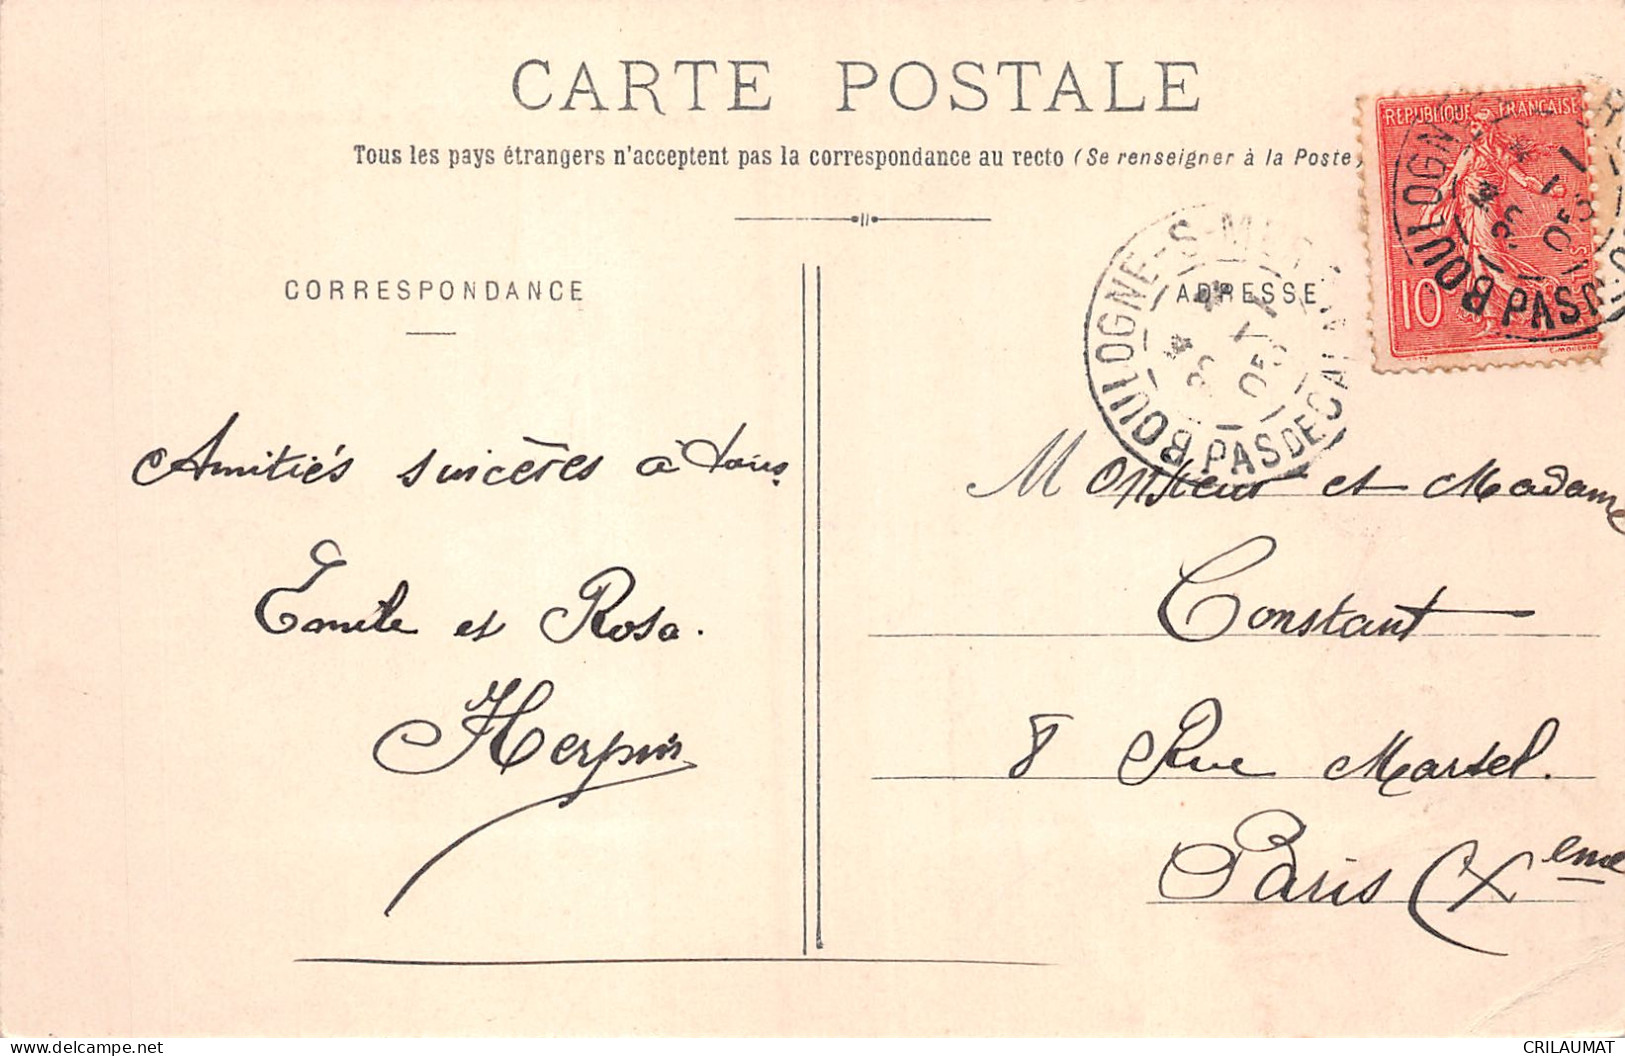 CARTE POSTALE
Tous les pays étrangers n'acceptent pas la correspondance au recto (Se renseigner à la Poste)
CORRESPONDANCE
ADRESSE
REPUBLIQUE FRANÇAISE
10
BOULOGNE-S-MER
PAS DE CALAIS
1
05
BOULOGNE
PAS
05
Amitiés sincères à tous
Emile et Rosa.
Herpin
Monsieur et Madame
Constant
8 Rue Martel.
Paris (Xeme
delcampe.net
CRILAUMAT